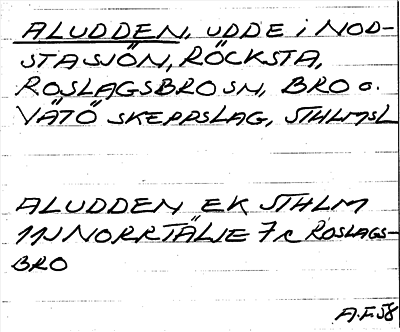 ALUDDEN, UDDE i NOD-
STASJÖN, RÖCKSTA,
ROSLAGSBRO SN, BRO o.
VÄTÖ SKEPPSLAG, STHLMSL
ALUDDEN EK STHLM
11J NORRTÄLJE 7c ROSLAGS-
BRO
A.F.58